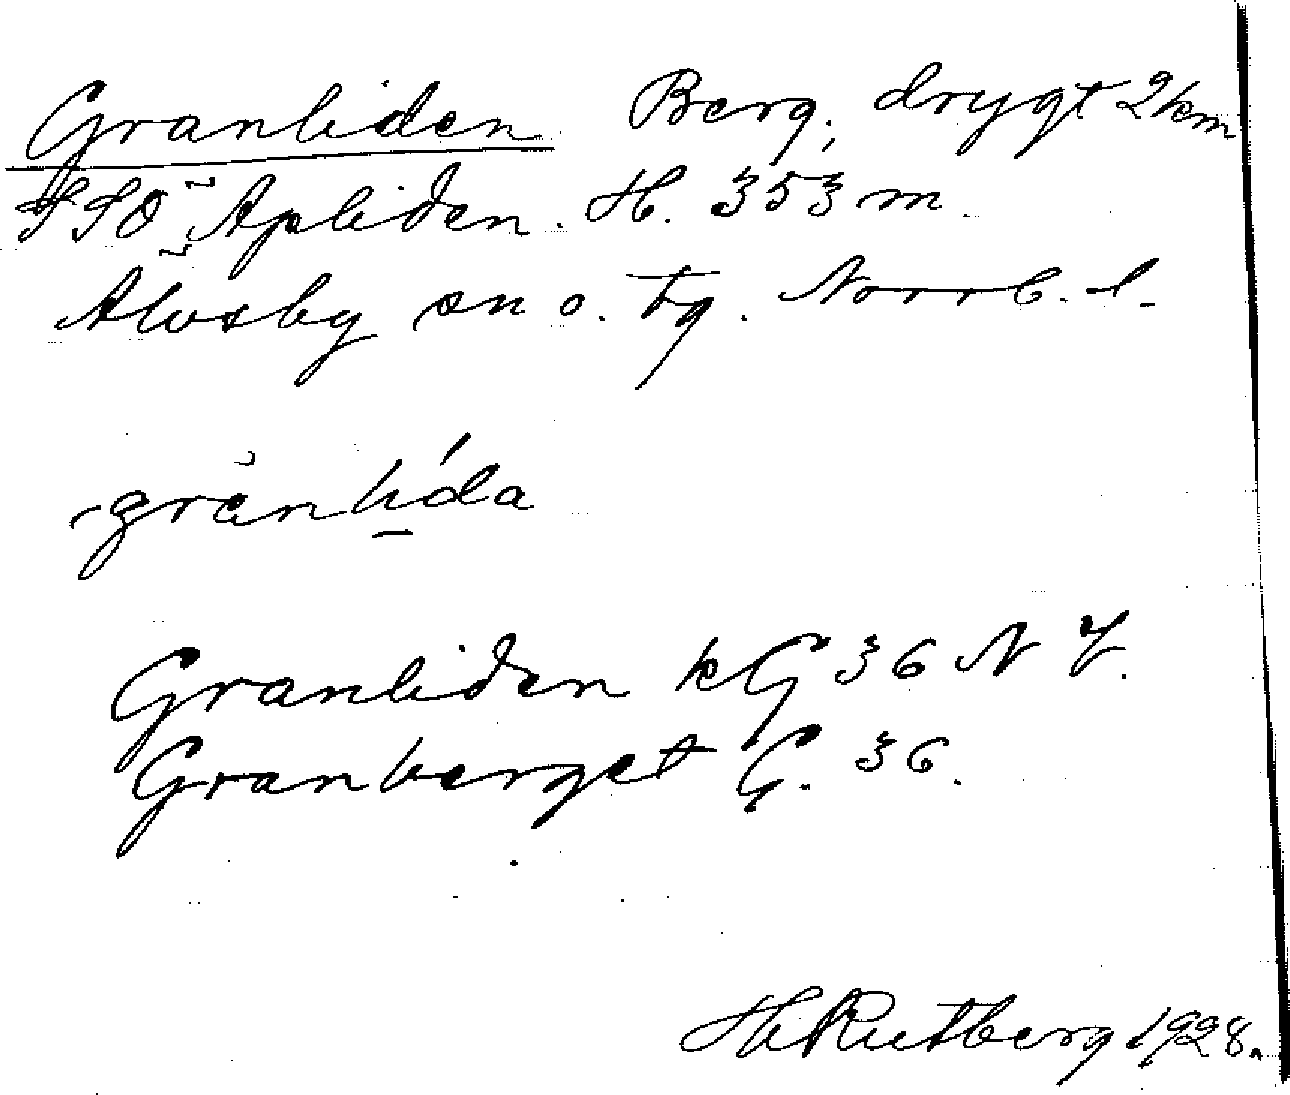 Granliden Berg, drygt 2 km
SSO Äpliden. H. 353 m.
Älvsby sn o. tg. Norrb. l.
grànlída
Granliden kG 36 N J.
Granberget G. 36.
H Rutberg 1928.